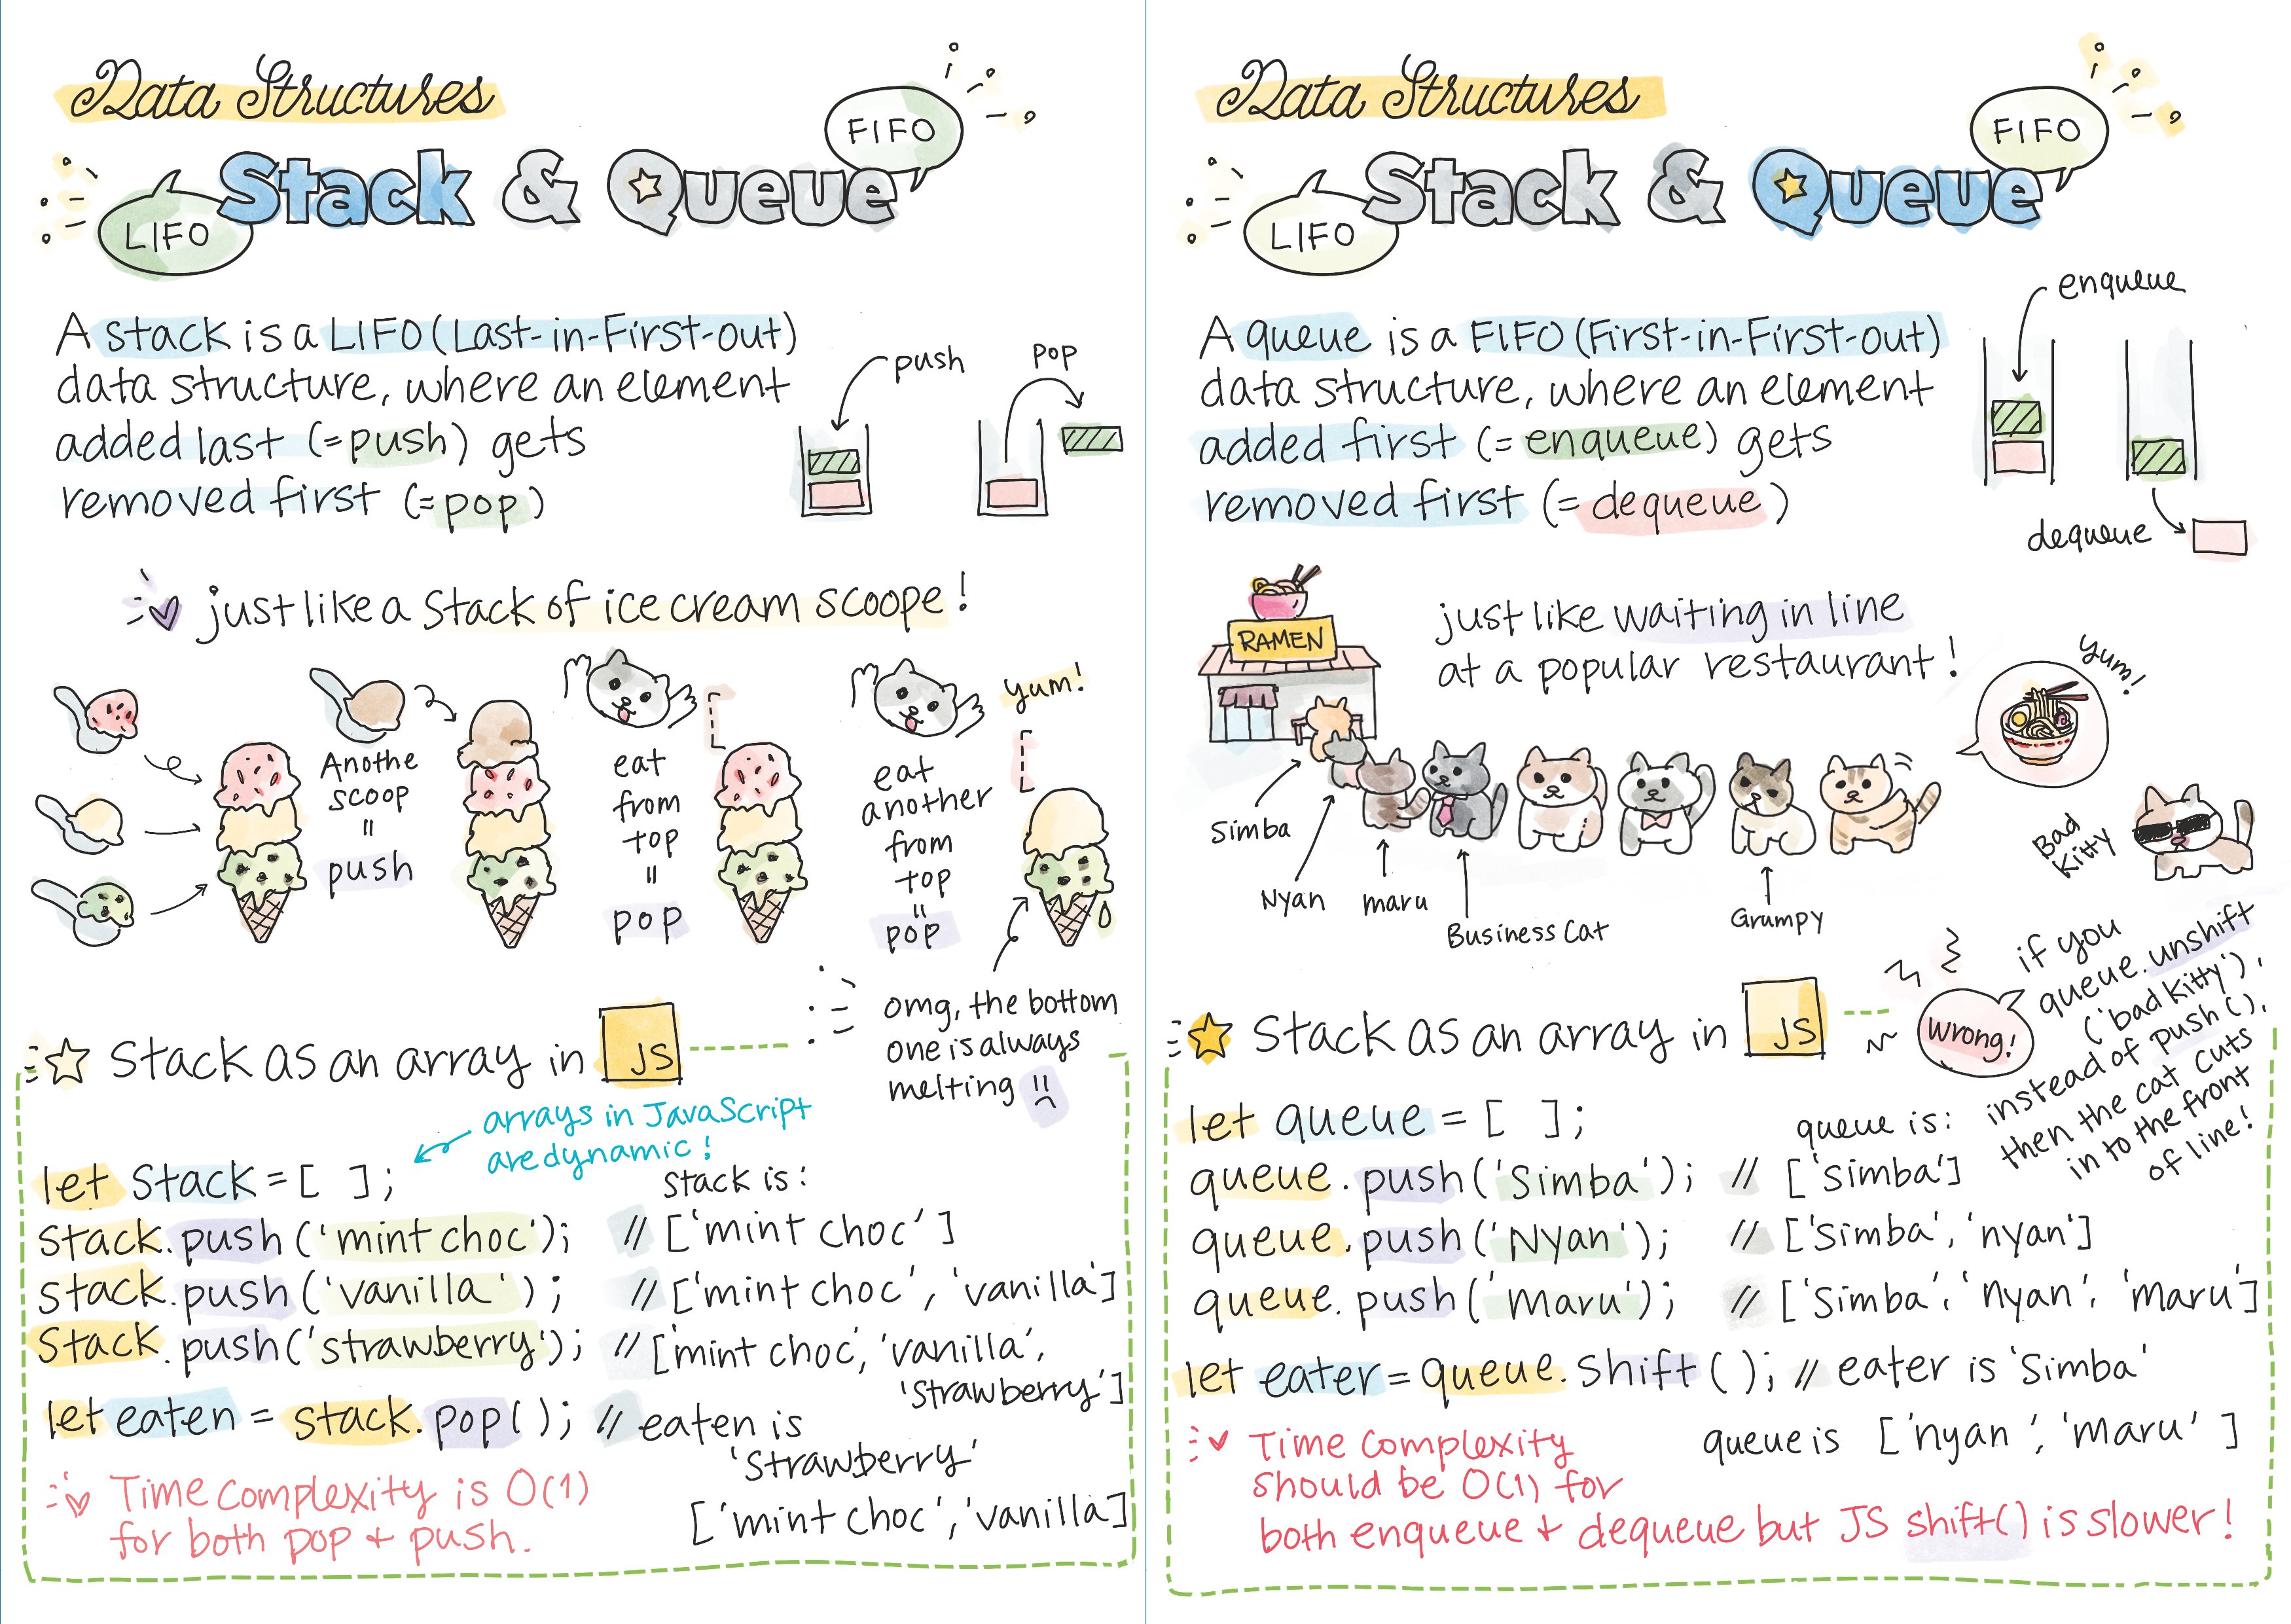 Data Structures
Stack & Queue
LIFO
FIFO
A stack is a LIFO (Last-in-First-out)
data structure, where an element
added last (=push) gets
removed first (=pop)
push
pop
just like a stack of ice cream scoope!
Anothe
scoop
=
push
eat
from
top
=
pop
eat
another
from
top
=
pop
yum!
omg, the bottom
one is always
melting
Stack as an array in JS
arrays in JavaScript
are dynamic!
let stack = [ ];
stack is:
stack.push('mint choc'); // ['mint choc']
stack.push('vanilla'); // ['mint choc', 'vanilla']
stack.push('strawberry'); // ['mint choc', 'vanilla',
'strawberry']
let eaten = stack.pop(); // eaten is
'strawberry'
['mint choc', 'vanilla]
Time complexity is O(1)
for both pop + push.
Data Structures
Stack & Queue
LIFO
FIFO
A queue is a FIFO (First-in-First-out)
data structure, where an element
added first (= enqueue) gets
removed first (= dequeue)
enqueue
dequeue
RAMEN
just like waiting in line
at a popular restaurant!
yum!
Simba
Nyan
maru
Business Cat
Grumpy
Bad
Kitty
Wrong!
if you
queue.unshift
('bad kitty'),
instead of push(),
then the cat cuts
in to the front
of line!
Stack as an array in JS
let queue = [ ];
queue is:
queue.push('Simba'); // ['simba']
queue.push('Nyan'); // ['simba', 'nyan']
queue.push('Maru'); // ['simba', 'nyan', 'maru']
let eater = queue.shift(); // eater is 'Simba'
queue is ['nyan', 'maru']
Time complexity
should be O(1) for
both enqueue + dequeue but JS shift() is slower!